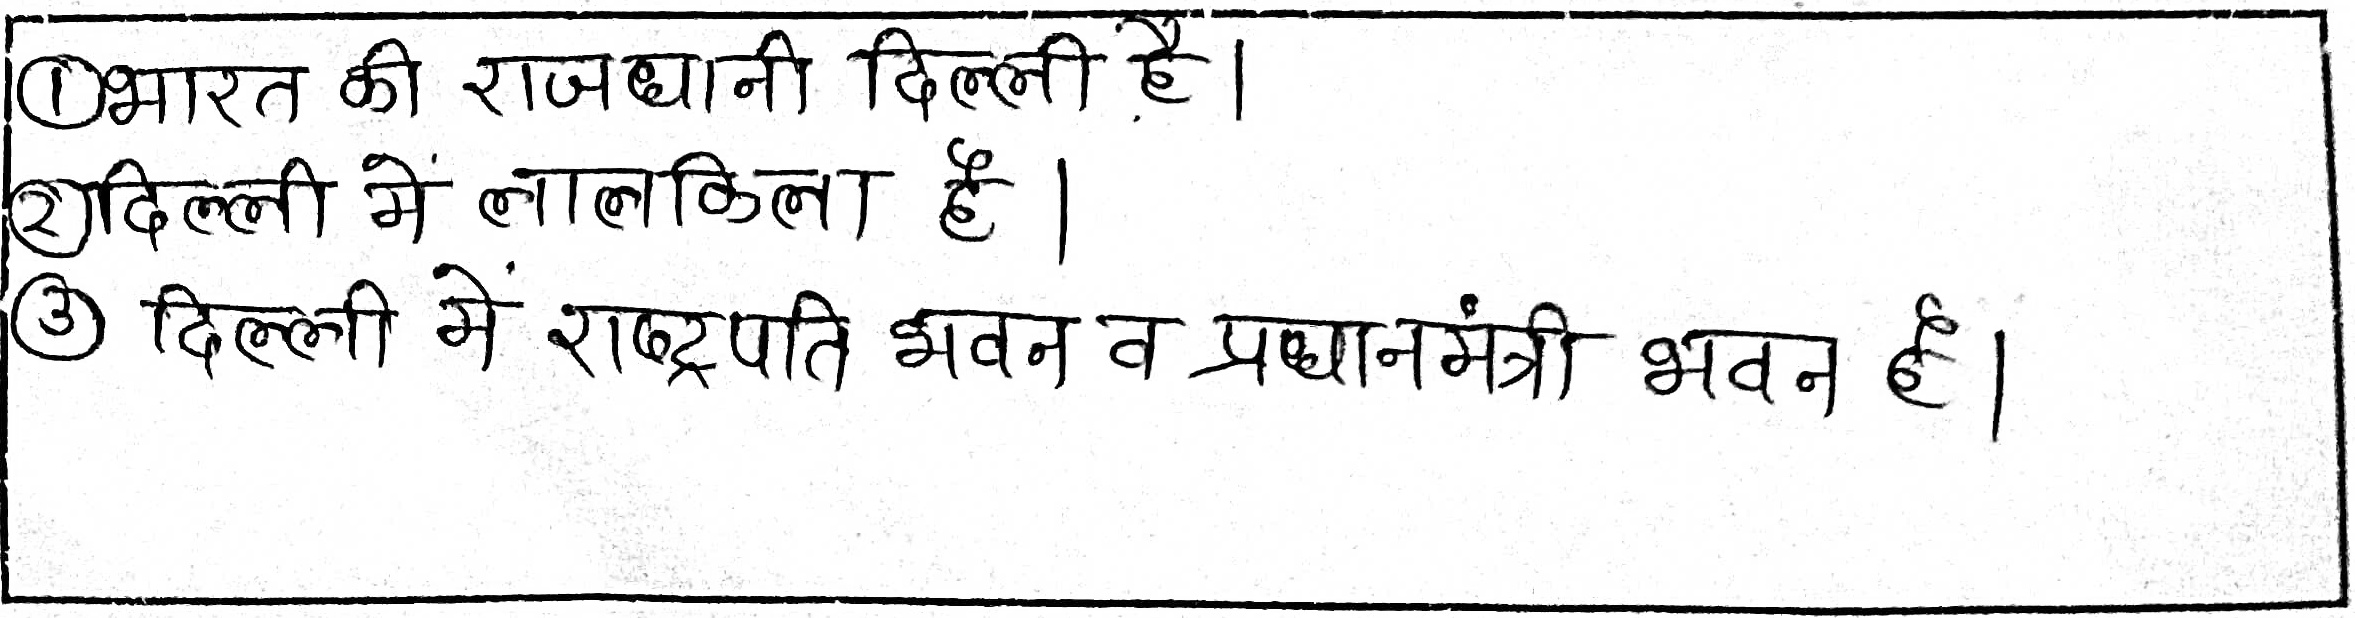 ① भारत की राजधानी दिल्ली है।
② दिल्ली में लालकिला है।
③ दिल्ली में राष्ट्रपति भवन व प्रधानमंत्री भवन है।